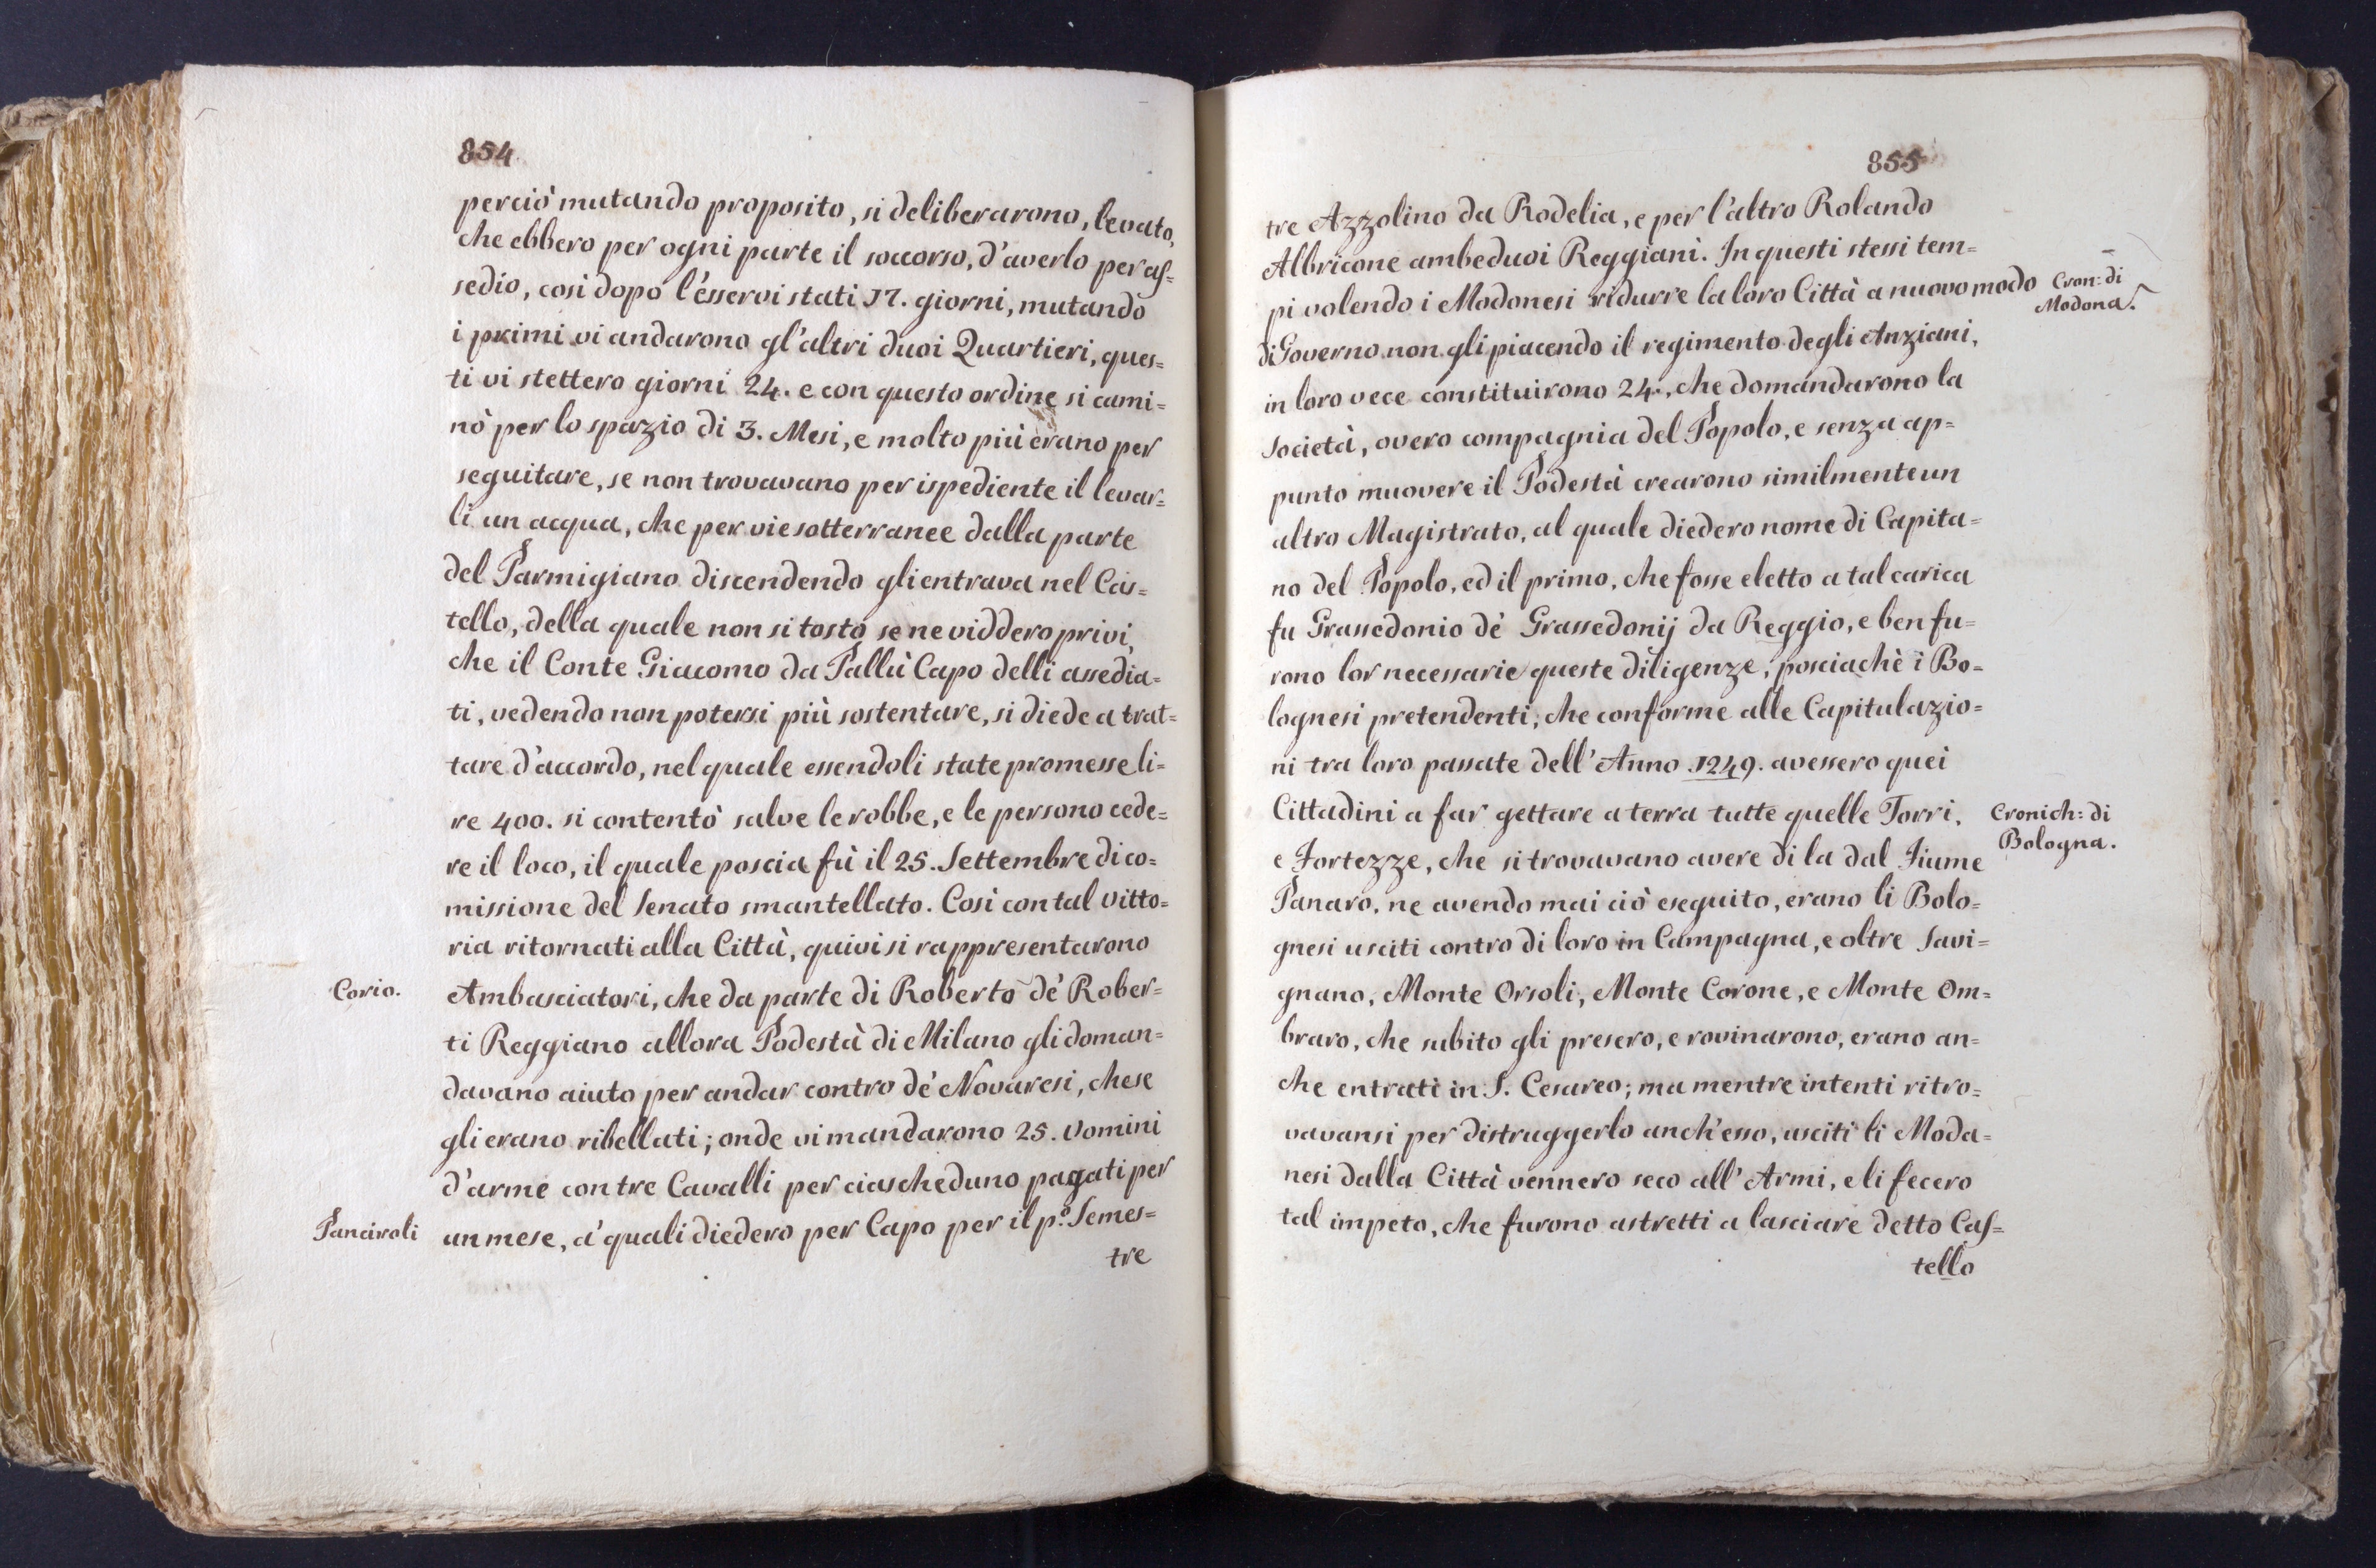 854
perciò mutando proposito, si deliberarono, levato,
che ebbero per ogni parte il soccorso, d'averlo per as=
sedio, così dopo l'esservi stati 17. giorni, mutando
i primi vi andarono gl'altri duoi Quartieri, ques=
ti vi stettero giorni 24. e con questo ordine si cami=
nò per lo spazio di 3. Mesi, e molto più erano per
seguitare, se non trovavano per ispediente il levar=
li un acqua, che per vie sotterranee dalla parte
del Parmigiano discendendo gli entrava nel Cas=
tello, della quale non si tosto se ne viddero privi,
che il Conte Giacomo da Pallù Capo delli assedia=
ti, vedendo non potersi più sostentare, si diede a trat=
tare d'accordo, nel quale essendoli state promesse li=
re 400. si contentò salve le robbe, e le persone cede=
re il loco, il quale poscia fù il 25. Settembre di co=
missione del Senato smantellato. Così con tal vitto=
ria ritornati alla Città, quivi si rappresentarono
Corio.
Ambasciatori, che da parte di Roberto dè Rober=
ti Reggiano allora Podestà di Milano gli doman=
davano aiuto per andar contro dè Novaresi, che se
gli erano ribellati; onde vi mandarono 25. Uomini
d'arme con tre Cavalli per ciascheduno pagati per
Panciroli
un mese, a' quali diedero per Capo per il p.º Semes=
tre
855
tre Azzolino da Rodelia, e per l'altro Rolando
Albricone ambeduoi Reggiani. In questi stessi tem=
pi volendo i Modonesi ridurre la loro Città a nuovo modo
Cron: di
Modona.
di Governo non gli piacendo il regimento degli Anziani,
in loro vece constituirono 24., che domandarono la
Società, overo compagnia del Popolo, e senza ap=
punto muovere il Podestà crearono similmente un
altro Magistrato, al quale diedero nome di Capita=
no del Popolo, ed il primo, che fosse eletto a tal carica
fu Grassedonio dè Grassedonij da Reggio, e ben fu=
rono lor necessarie queste diligenze, posciachè i Bo=
lognesi pretendenti, che conforme alle Capitulazio=
ni tra loro passate dell'Anno .1249. avessero quei
Cittadini a far gettare a terra tutte quelle Torri,
Cronich: di
Bologna.
e Fortezze, che si trovavano avere di la dal Fiume
Panaro, ne avendo mai ciò eseguito, erano li Bolo=
gnesi usciti contro di loro in Campagna, e oltre Savi=
gnano, Monte Orsoli, Monte Corone, e Monte Om=
braro, che subito gli presero, e rovinarono, erano an=
che entrati in S. Cesareo; ma mentre intenti ritro=
vavansi per distruggerlo anch'esso, usciti li Moda=
nesi dalla Città vennero seco all'Armi, e li fecero
tal impeto, che furono astretti a lasciare detto Cas=
tello